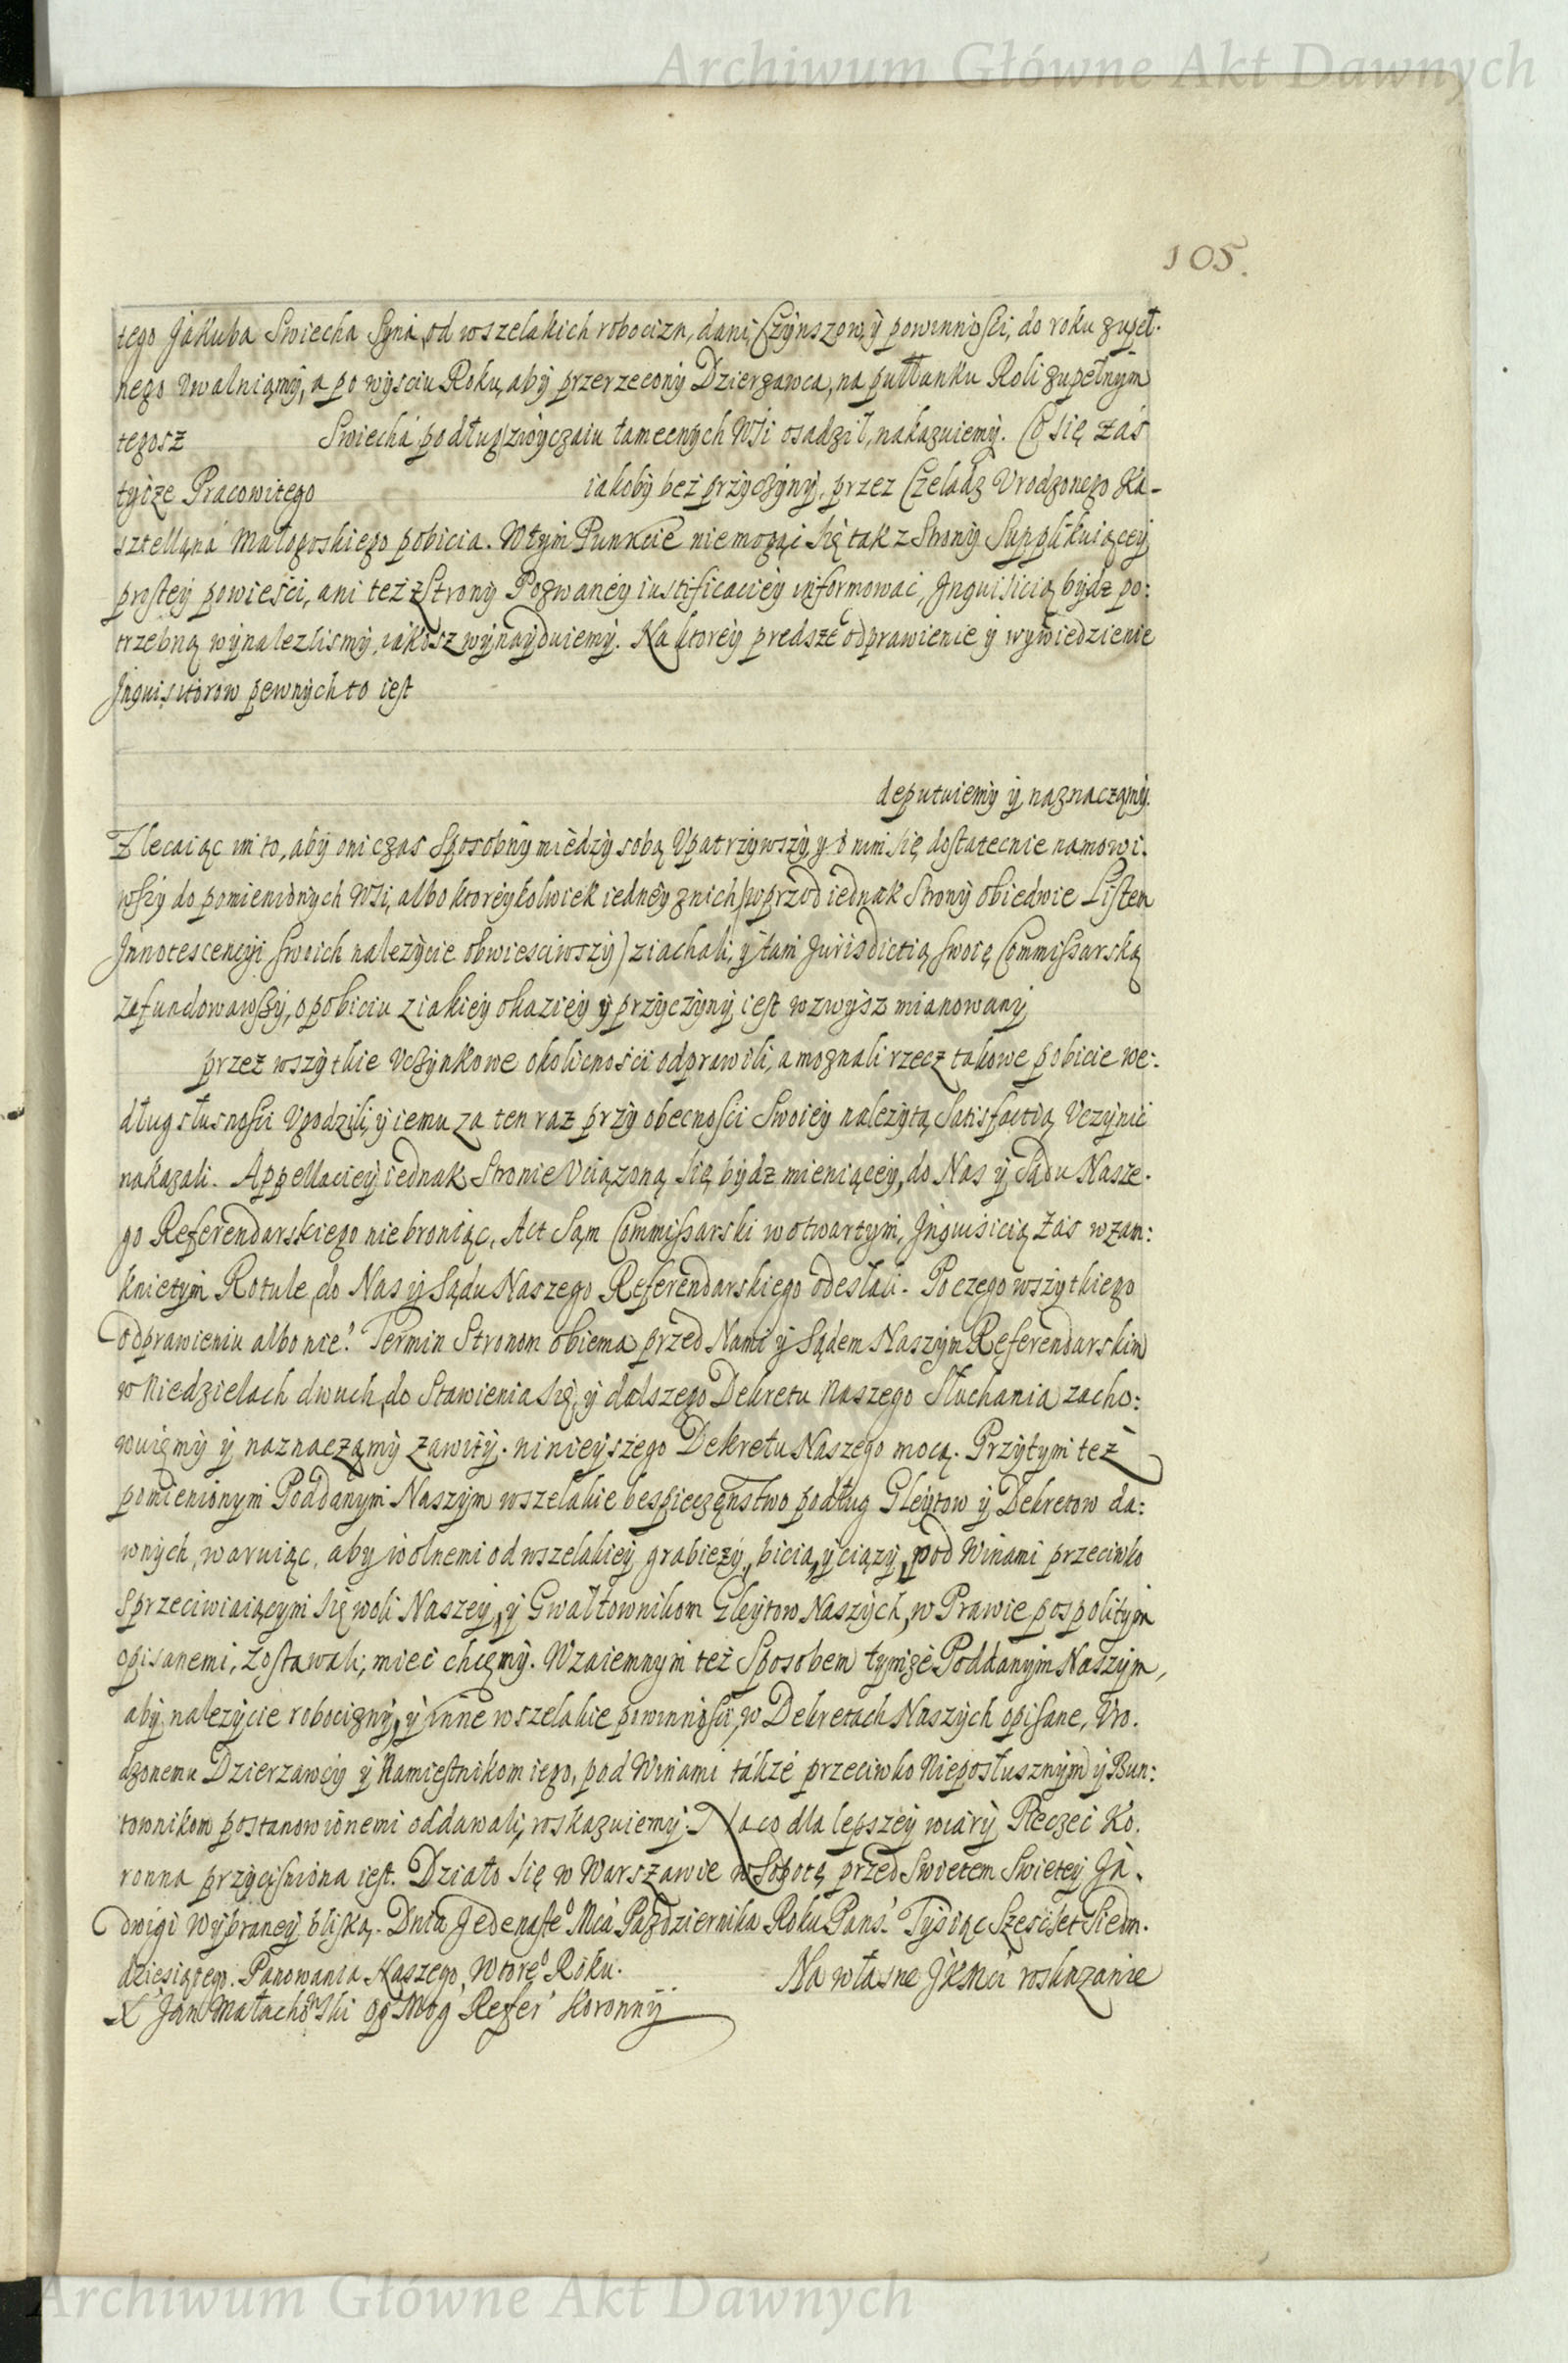 Archiwum Główne Akt Dawnych
105.
tego Jakuba Swiecha Syna, od wszelakich robocizn, dani, Czynszow, y powinnosci, do roku zupeł-
nego Uwalniamy, a po wysciu Roku, aby przerzeczony Dzierzawca, na pułłanku Roli zupełnym
tegosz Swiecha podług zwyczaiu tamecznych Wsi osadził, nakazuiemy. Co się zaś
tycze Pracowitego iakoby bez przyczyny, przez Czeladz Urodzonego Ka-
sztellana Małogoskiego pobicia. W tym Punkcie nie mogąc się tak z Strony Supplikuiącey
prostey powieści, ani też z Strony Pozwaney iustificaciey informować, Inquisicią bydz po:
trzebną wynalezlismy, iakosz wynayduiemy. Na ktorey predsze odprawienie y wywiedzienie
Inquisitorow pewnych to iest
deputuiemy y naznaczamy.
Zlecaiąc im to, aby oni czas sposobny między sobą Upatrzywszy, y o nim się dostatecznie namowi-
wszy do pomienionych Wsi, albo ktoreykolwiek iedney z nich (wprzod iednak Strony obiedwie Listem
Innotescencyi swoich nalezycie obwiesciwszy) ziachali, y tam Jurisdictią swoię Commissarską
zafundowawszy, o pobiciu z iakiey okaziey y przyczyny iest wzwysz mianowany
przez wszytkie Uczynkowe okolicności odprawili, a moznali rzecz takowe pobicie we:
dług słusności Ugodzili, y iemu za ten raz przy obecności Swoiey nalezytą Satisfactią Uczynić
nakazali. Appellaciey iednak Stronie Uciązoną się bydz mieniącey, do Nas y Sądu Nasze-
go Referendarskiego nie broniąc, Act Sam Commissarski w otwartym, Inquisicią zas w zam:
knietym Rotule, do Nas y Sądu Naszego Referendarskiego odesłali. Po czego wszytkiego
odprawieniu albo nie? Termin Stronom obiema przed Nami y Sądem Naszym Referendarskim
w Niedzielach dwuch, do Stawienia się, y dalszego Dekretu Naszego słuchania zacho:
wuięmy y naznaczamy zawity. ninieyszego Dekretu Naszego mocą. Przytym też
pomienionym Poddanym Naszym wszelakie bespieczęnstwo podług Gleytow y Dekretow da:
wnych, waruiąc, aby wolnemi od wszelakiey grabiezy, bicia, y ciązy, pod Winami przeciwko
sprzeciwiaiącym się woli Naszey, y Gwałtownikom Gleytow Naszych, w Prawie pospolitym
opisanemi, zostawali, mieć chcęmy. Wzaiemnym też Sposobem tymze Poddanym Naszym,
aby nalezycie robocizny, y inne wszelakie powinności, w Dekretach Naszych opisane, Uro-
dzonemu Dzierzawcy y Namiestnikom iego, pod Winami takze przeciwko Nieposłusznym y Bun:
townikom postanowionemi oddawali, roskazuiemy. Na co dla lepszey wiary, Pieczęć Ko-
ronna przycisniona iest. Działo się w Warszawie w Sobotę przed Swietem Swietey Ja-
dwigi Wybraney bliską. Dnia Jedenaste° Mca Pazdziernika Roku Pans. Tysiąc Szescset Siedm-
dziesiątego. Panowania Naszego, Wtore° Roku. Na własne JKMci roskazanie
X Jan Małachowski Op. Mog. Refer. Koronny
Archiwum Główne Akt Dawnych